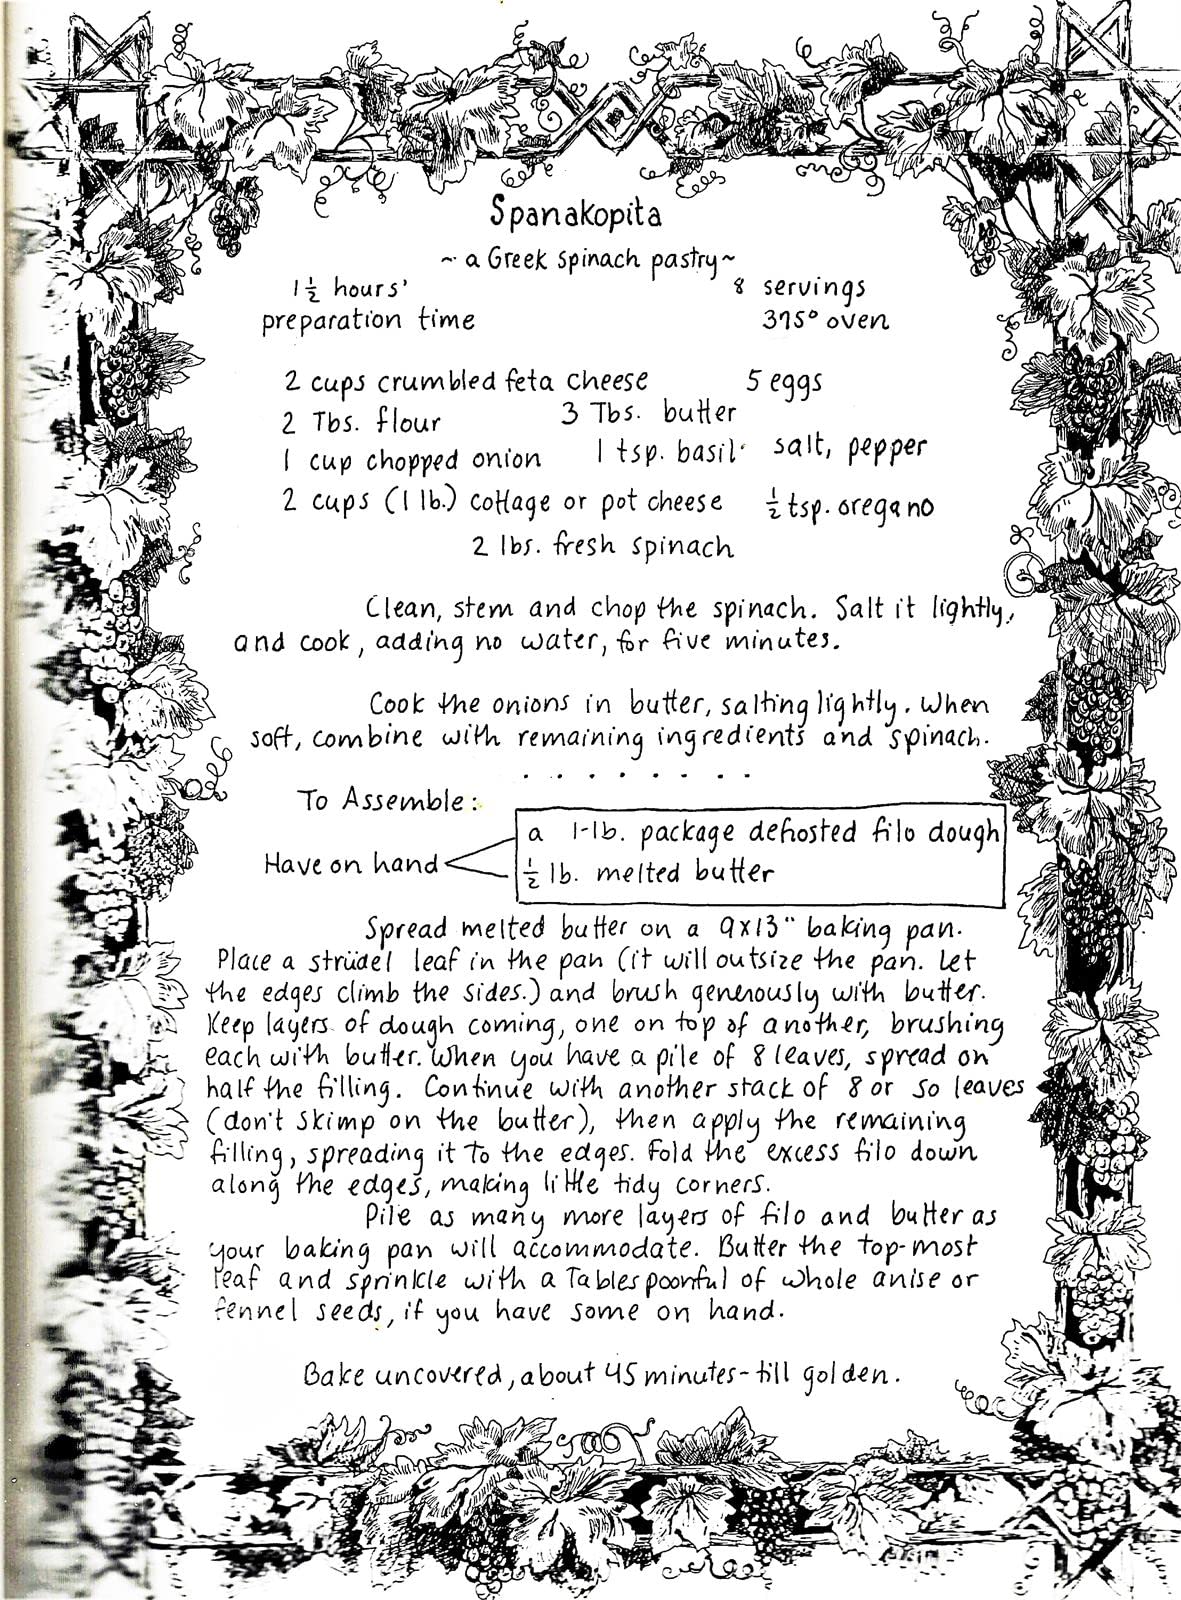 Spanakopita
~ a Greek spinach pastry ~
1½ hours'
preparation time
8 servings
375° oven
2 cups crumbled feta cheese 5 eggs
2 Tbs. flour 3 Tbs. butter
1 cup chopped onion 1 tsp. basil salt, pepper
2 cups (1 lb.) cottage or pot cheese ½ tsp. oregano
2 lbs. fresh spinach
Clean, stem and chop the spinach. Salt it lightly,
and cook, adding no water, for five minutes.
Cook the onions in butter, salting lightly. When
soft, combine with remaining ingredients and spinach.
. . . . . . . .
To Assemble:
Have on hand
a 1-lb. package defrosted filo dough
½ lb. melted butter
Spread melted butter on a 9x13" baking pan.
Place a strüdel leaf in the pan (it will outsize the pan. Let
the edges climb the sides.) and brush generously with butter.
Keep layers of dough coming, one on top of another, brushing
each with butter. When you have a pile of 8 leaves, spread on
half the filling. Continue with another stack of 8 or so leaves
(don't skimp on the butter), then apply the remaining
filling, spreading it to the edges. Fold the excess filo down
along the edges, making little tidy corners.
Pile as many more layers of filo and butter as
your baking pan will accommodate. Butter the top-most
leaf and sprinkle with a Tablespoonful of whole anise or
fennel seeds, if you have some on hand.
Bake uncovered, about 45 minutes - till golden.